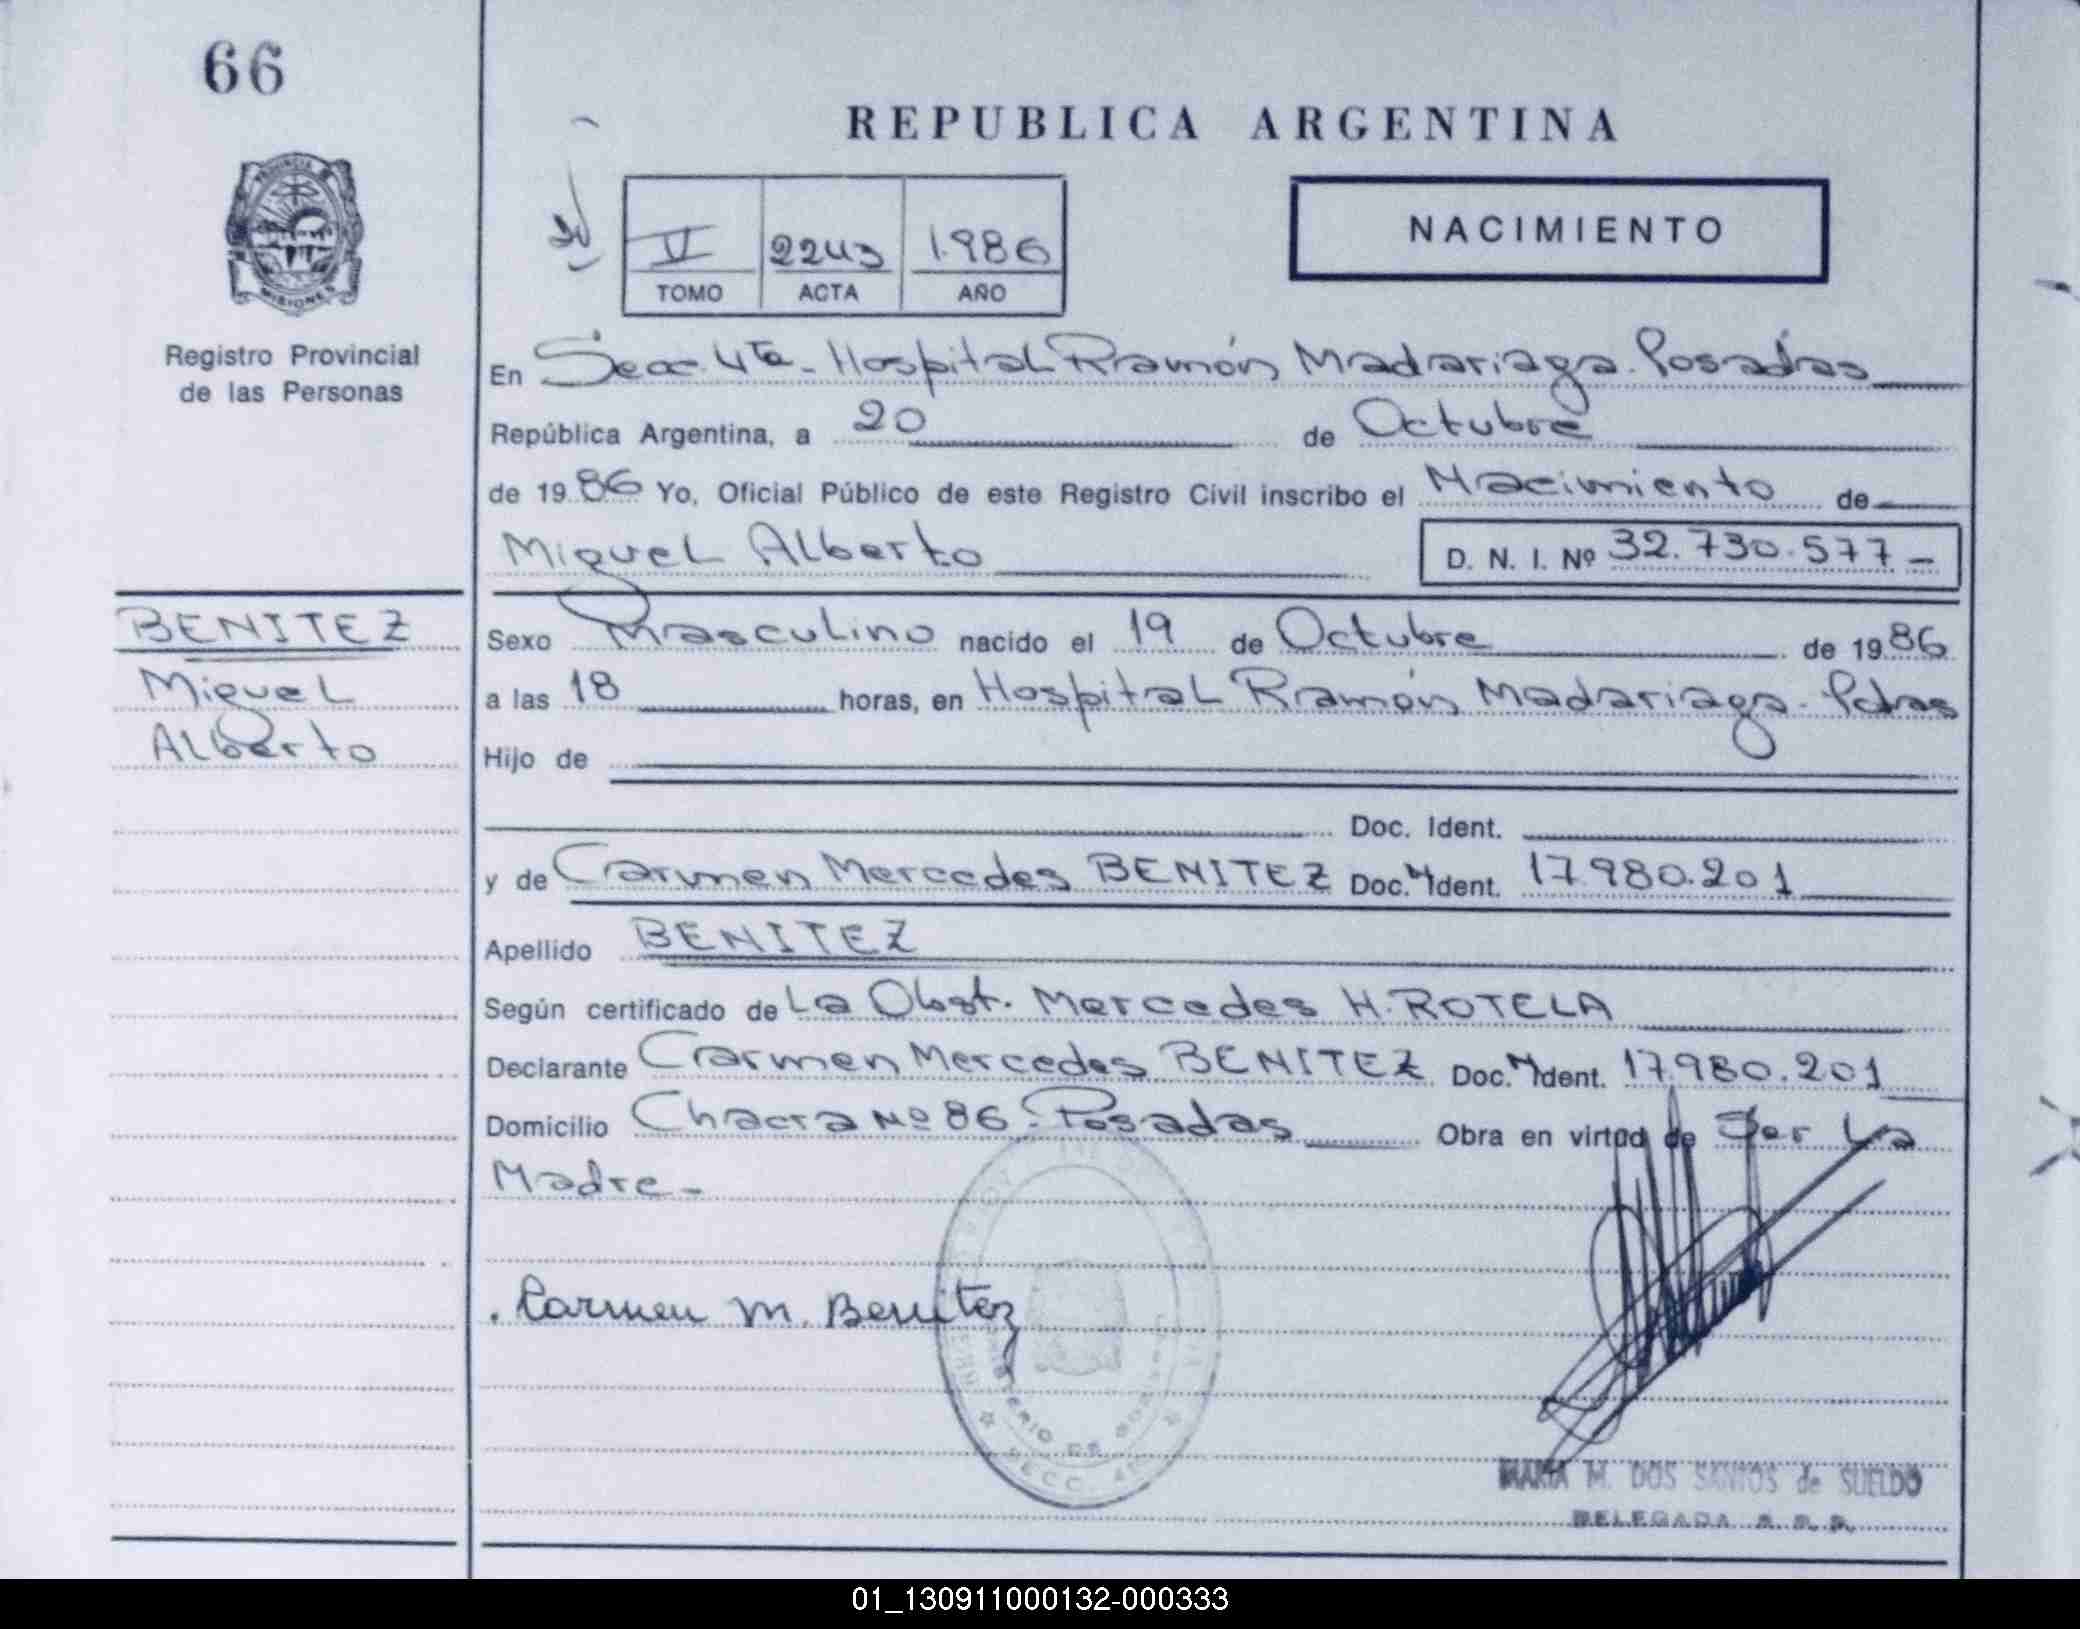 66
REPUBLICA ARGENTINA
NACIMIENTO
V 2243 1.986
TOMO ACTA AÑO
PROVINCIA DE
MISIONES
Registro Provincial
de las Personas
En Secc. 4ta - Hospital Ramón Madariaga. Posadas
República Argentina, a 20 de Octubre
de 1986 Yo, Oficial Público de este Registro Civil inscribo el Nacimiento de
Miguel Alberto D. N. I. Nº 32.730.577 -
BENITEZ
Miguel
Alberto
Sexo Masculino nacido el 19 de Octubre de 1986
a las 18 horas, en Hospital Ramón Madariaga. Pdas
Hijo de
Doc. Ident.
y de Carmen Mercedes BENITEZ Doc. Ident. 17.980.201
Apellido BENITEZ
Según certificado de La Obst. Mercedes H. ROTELA
Declarante Carmen Mercedes BENITEZ Doc. Ident. 17.980.201
Domicilio Chacra Nº 86 - Posadas Obra en virtud de Ser La
Madre -
Carmen M. Benitez
MINISTERIO DE GOBIERNO
SECC. 4ta
MARIA M. DOS SANTOS de SUELDO
DELEGADA R. P. P.
01_130911000132-000333